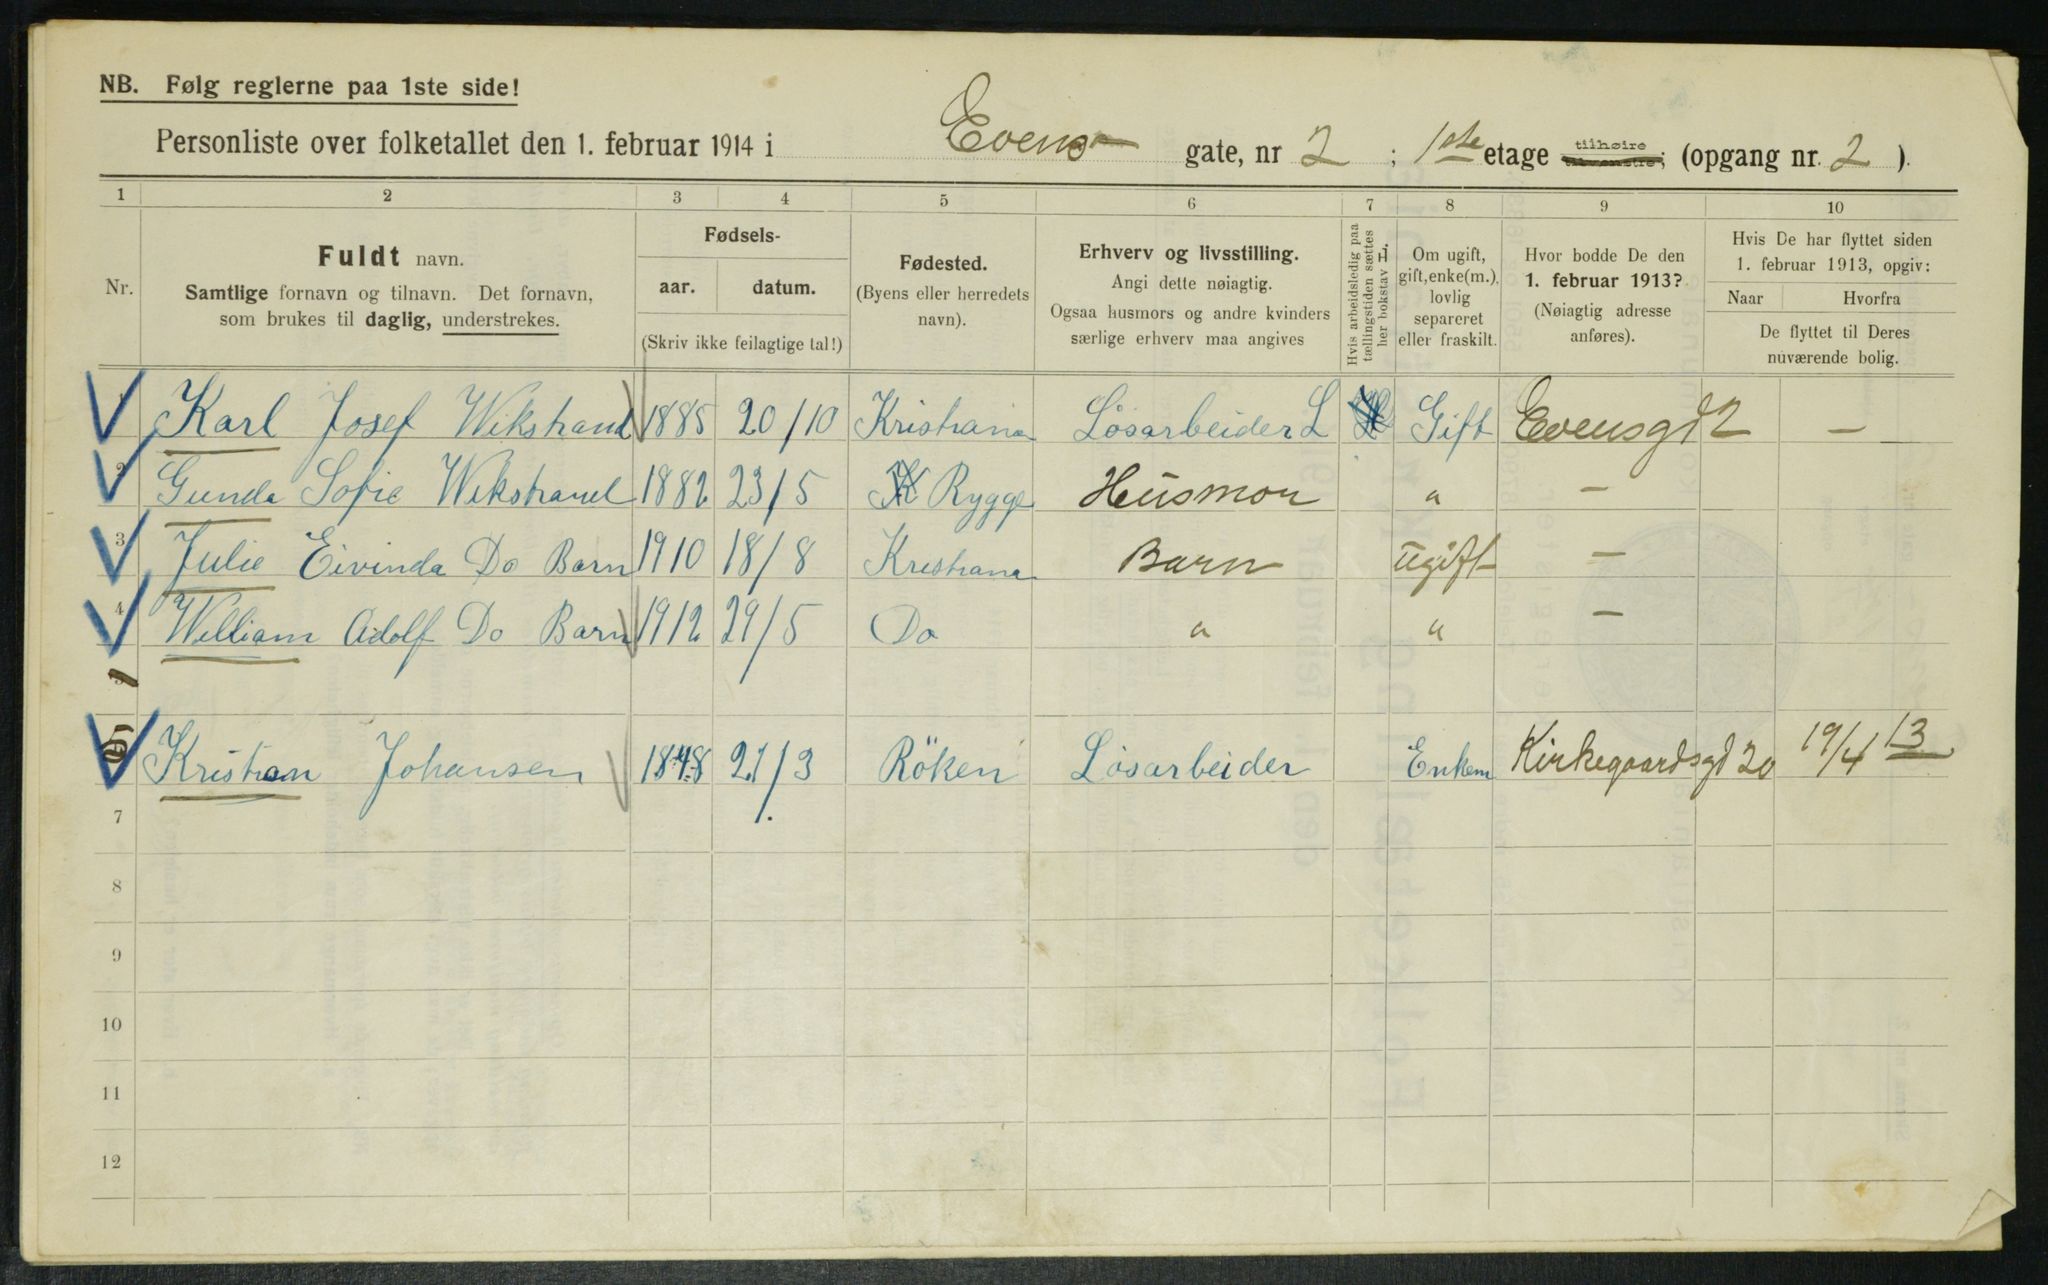 NB. Følg reglerne paa 1ste side!
Personliste over folketallet den 1. februar 1914 i Evens gate, nr 2 ; 1ste etage tilhøire til venstre; (opgang nr. 2 ).
1 2 3 4 5 6 7 8 9 10
Nr.
Fuldt navn.
Samtlige fornavn og tilnavn. Det fornavn,
som brukes til daglig, understrekes.
Fødsels-
aar. datum.
(Skriv ikke feilagtige tal!)
Fødested.
(Byens eller herredets
navn).
Erhverv og livsstilling.
Angi dette nøiagtig.
Ogsaa husmors og andre kvinders
særlige erhverv maa angives
Hvis arbeidsledig paa
tællingstiden sættes
her bokstav L.
Om ugift,
gift, enke(m.),
lovlig
separeret
eller fraskilt.
Hvor bodde De den
1. februar 1913?
(Nøiagtig adresse
anføres).
Hvis De har flyttet siden
1. februar 1913, opgiv:
Naar Hvorfra
De flyttet til Deres
nuværende bolig.
1 Karl Josef Wikstrand 1885 20/10 Kristiania Løsarbeider L Gift Evensgd 2 —
2 Gunda Sofie Wikstrand 1882 23/5 K Rygge Husmor " —
3 Julie Eivinda Do Barn 1910 18/8 Kristiana Barn ugift —
4 William Adolf Do Barn 1912 29/5 Do " " —
5
Kristian Johansen 1848 21/3 Röken Løsarbeider Enkem Kirkegaardsgd 20 19/4 13
7
8
9
10
11
12